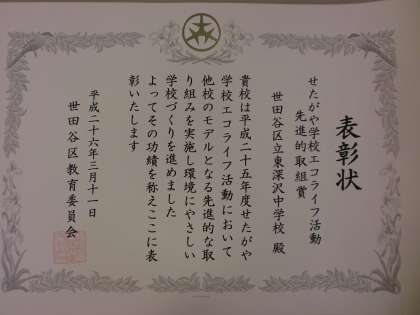 表彰状
せたがや学校エコライフ活動
先進的取組賞
世田谷区立東深沢中学校 殿
貴校は平成二十五年度せたがや
学校エコライフ活動において
他校のモデルとなる先進的な取
り組みを実施し環境にやさしい
学校づくりを進めました
よってその功績を称えここに表
彰いたします
平成二十六年三月十一日
世田谷区教育委員会